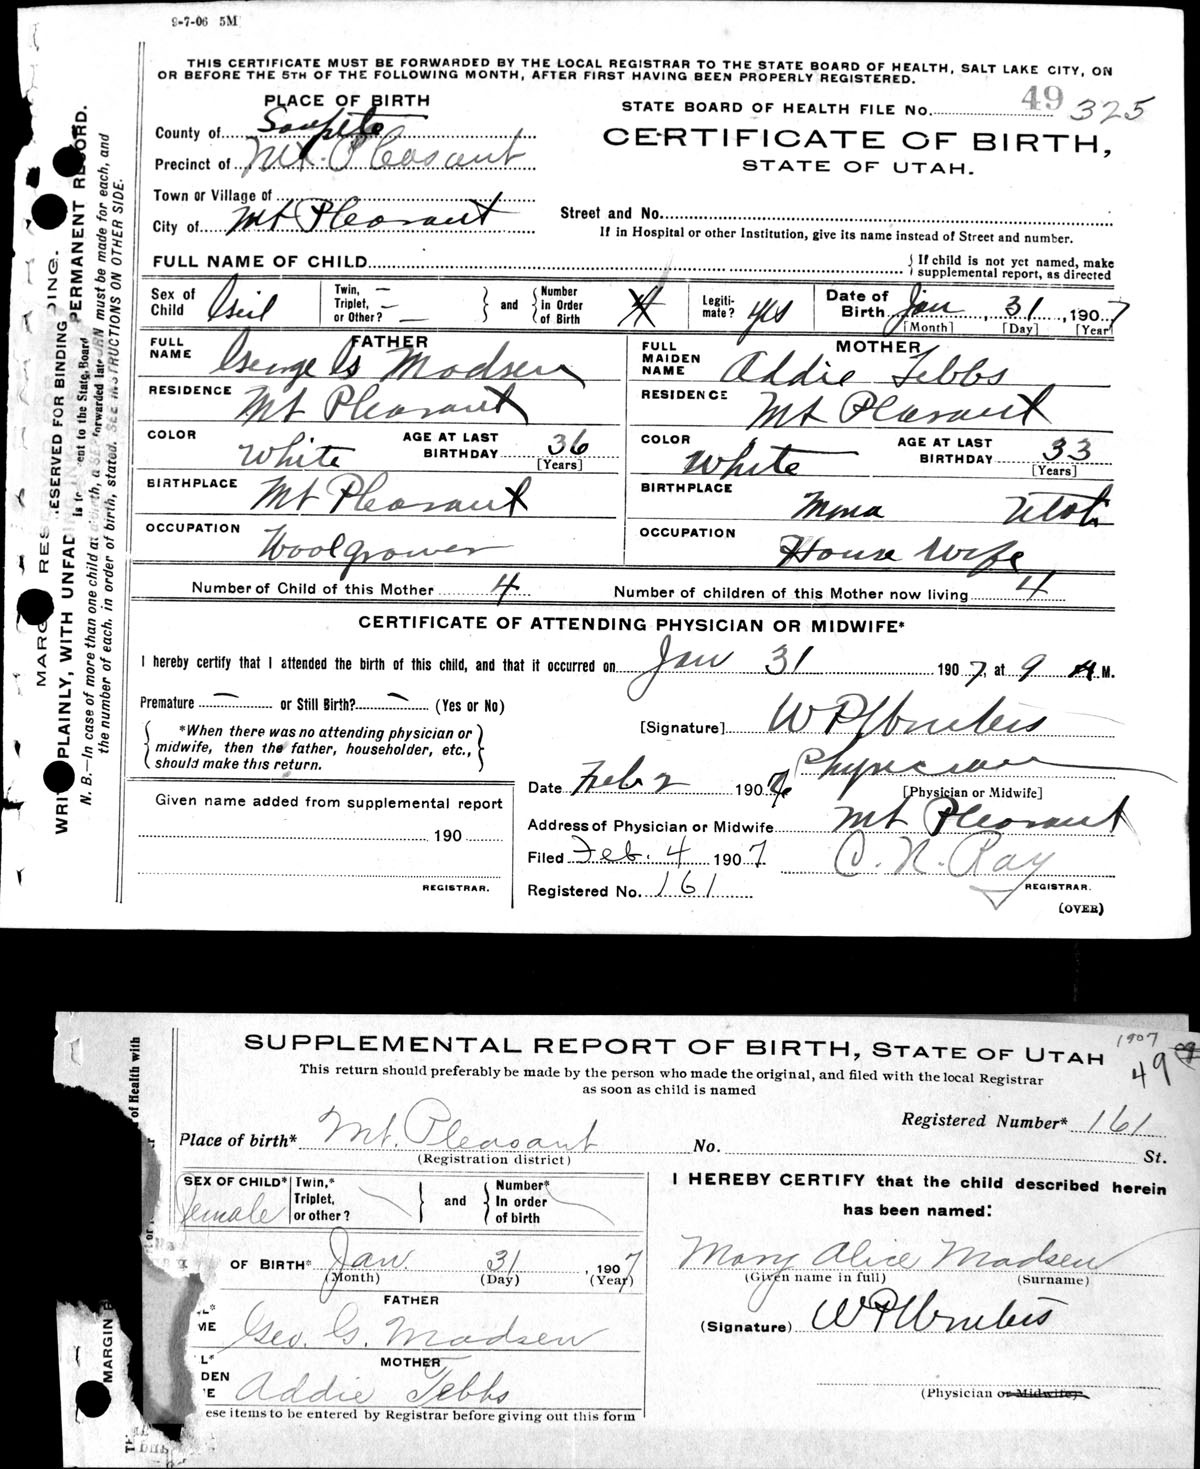 9-7-06 5M
THIS CERTIFICATE MUST BE FORWARDED BY THE LOCAL REGISTRAR TO THE STATE BOARD OF HEALTH, SALT LAKE CITY, ON
OR BEFORE THE 5TH OF THE FOLLOWING MONTH, AFTER FIRST HAVING BEEN PROPERLY REGISTERED.
PLACE OF BIRTH
STATE BOARD OF HEALTH FILE No. 49 325
County of Sanpete
CERTIFICATE OF BIRTH,
Precinct of Mt. Pleasant
STATE OF UTAH.
Town or Village of
City of Mt Pleasant
Street and No.
If in Hospital or other Institution, give its name instead of Street and number.
FULL NAME OF CHILD
If child is not yet named, make
supplemental report, as directed
Sex of Child Girl Twin, Triplet, or Other? and Number in Order of Birth 4 Legiti- mate? yes Date of Birth Jan 31, 1907
[Month] [Day] [Year]
FATHER
FULL NAME George G Madsen
RESIDENCE Mt Pleasant
COLOR White AGE AT LAST BIRTHDAY 36
[Years]
BIRTHPLACE Mt Pleasant
OCCUPATION Woolgrower
MOTHER
FULL MAIDEN NAME Addie Tebbs
RESIDENCE Mt Pleasant
COLOR White AGE AT LAST BIRTHDAY 33
[Years]
BIRTHPLACE Mona Utah
OCCUPATION House Wife
Number of Child of this Mother 4 Number of children of this Mother now living 4
CERTIFICATE OF ATTENDING PHYSICIAN OR MIDWIFE*
I hereby certify that I attended the birth of this child, and that it occurred on Jan 31 1907, at 9 A M.
Premature — or Still Birth? — (Yes or No)
*When there was no attending physician or
midwife, then the father, householder, etc.,
should make this return.
[Signature]
Physician
[Physician or Midwife]
Date Feb 2 1907
Address of Physician or Midwife Mt Pleasant
Filed Feb. 4 1907 C. N. Ray
REGISTRAR.
Registered No. 161
(OVER)
Given name added from supplemental report
190
REGISTRAR.
SERVED FOR BINDING
WRITE PLAINLY, WITH UNFADING
PERMANENT RECORD.
N. B.—In case of more than one child at
must be made for each, and
the number of each, in order of birth, stated. SEE INSTRUCTIONS ON OTHER SIDE.
SUPPLEMENTAL REPORT OF BIRTH, STATE OF UTAH
1907
49
This return should preferably be made by the person who made the original, and filed with the local Registrar
as soon as child is named
Registered Number* 161
Place of birth* Mt. Pleasant No. St.
(Registration district)
SEX OF CHILD* Female Twin,* Triplet, or other? and Number* In order of birth
OF BIRTH* Jan. 31, 1907
(Month) (Day) (Year)
FATHER
ME Geo. G. Madsen
MOTHER
DEN
E Addie Tebbs
ese items to be entered by Registrar before giving out this form
I HEREBY CERTIFY that the child described herein
has been named:
Mary Alice Madsen
(Given name in full) (Surname)
(Signature)
(Physician or Midwife)
of Health with
MARGIN